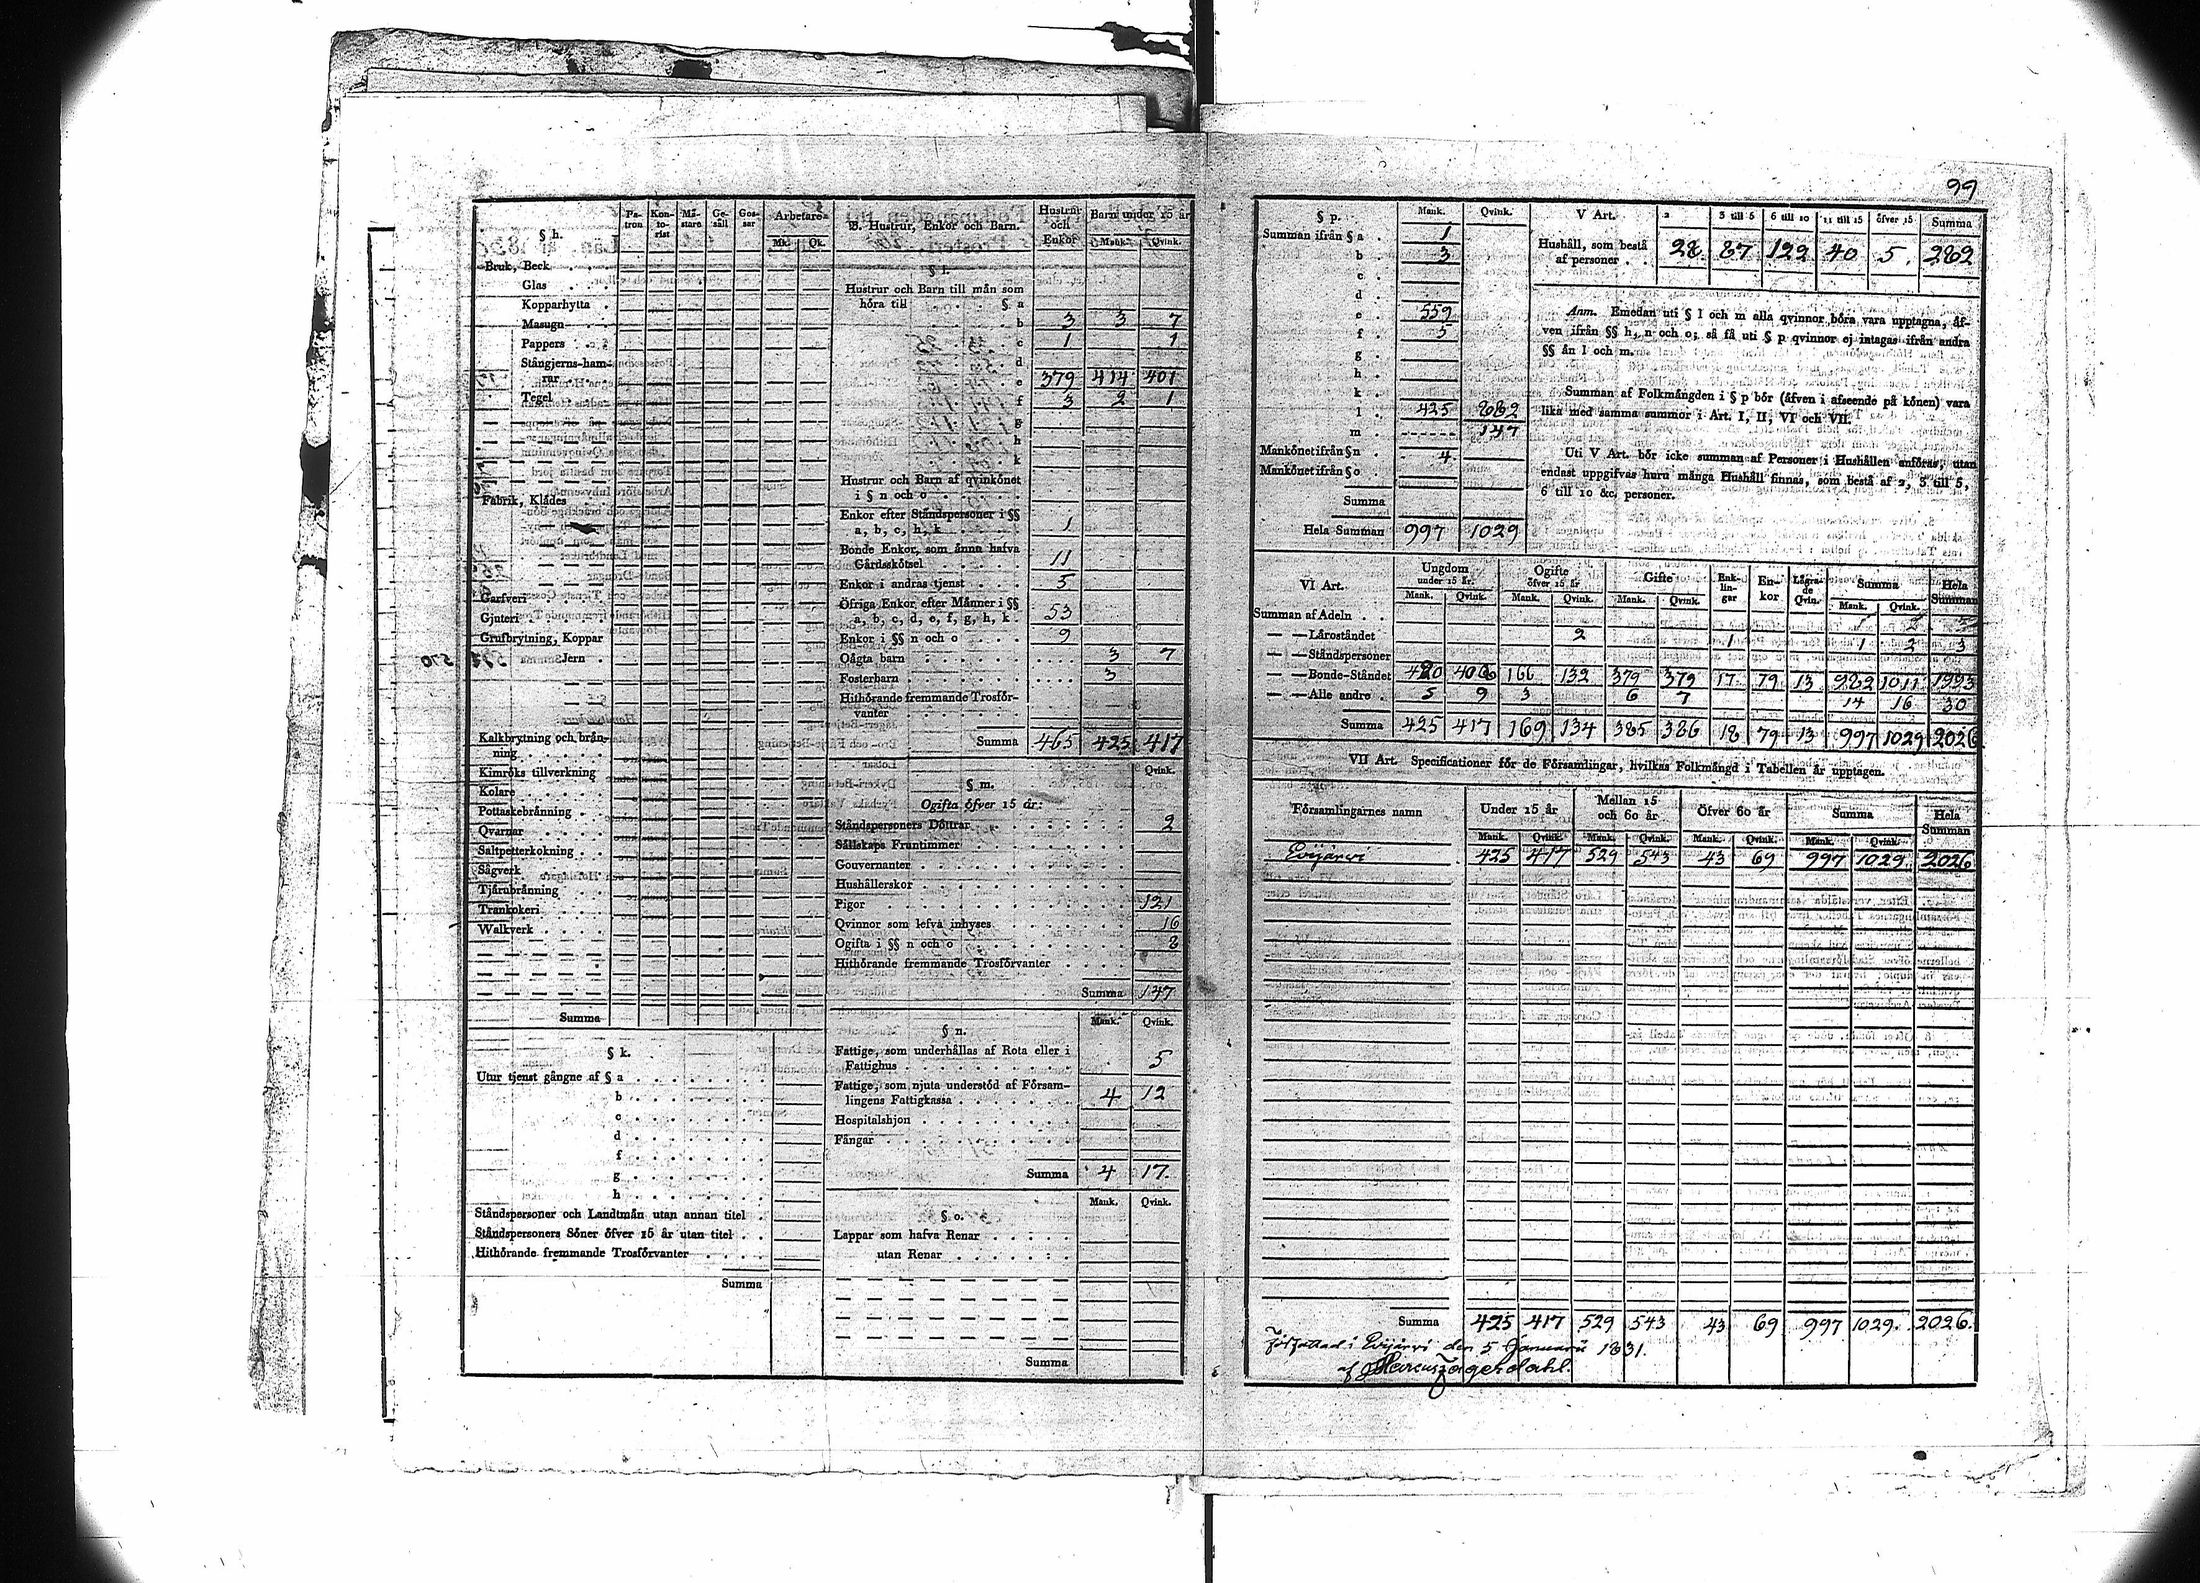 99
§ h.
Pa-tron Kon-to-rist Mä-stare Ge-säll Gos-sar Arbetare
Mk. Qk.
Bruk, Beck
Glas
Kopparhytta
Masugn
Pappers
Stångjerns-ham-
rar
Tegel
Fabrik, Klädes
Garfveri
Gjuteri
Grufbrytning, Koppar
Jern
Kalkbrytning och brän-
ning
Kimröks tillverkning
Kolare
Pottaskebränning
Qvarnar
Saltpetterkokning
Sågverk
Tjärubränning
Trankokeri
Walkverk
Summa
§ k.
Utur tjenst gångne af § a
b
c
d
f
g
h
Ståndspersoner och Landtmän utan annan titel
Ståndspersoners Söner öfver 15 år utan titel
Hithörande fremmande Trosförvanter
Summa
B. Hustrur, Enkor och Barn. Hustrur och Enkor Barn under 15 år
Mank. Qvink.
§ l.
Hustrur och Barn till män som
höra till § a
b 3 3 7
c 1 1
d
e 379 414 401
f 3 2 1
g
h
k
Hustrur och Barn af qvinkönet
i § n och o
Enkor efter Ståndspersoner i §§
a, b, c, h, k 1
Bonde Enkor, som ännu hafva
Gårdsskötsel 11
Enkor i andras tjenst 5
Öfriga Enkor efter Männer i §§
a, b, c, d, e, f, g, h, k 53
Enkor i §§ n och o 9
Oägta barn 3 7
Fosterbarn 3
Hithörande fremmande Trosför-
vanter
Summa 465 425 417
§ m. Qvink.
Ogifta öfver 15 år:
Ståndspersoners Döttrar 2
Sällskaps Fruntimmer
Gouvernanter
Hushållerskor
Pigor 121
Qvinnor som lefva inhyses 16
Ogifta i §§ n och o 8
Hithörande fremmande Trosförvanter
Summa 147
§ n. Mank. Qvink.
Fattige, som underhållas af Rota eller i
Fattighus 5
Fattige, som njuta understöd af Försam-
lingens Fattigkassa 4 12
Hospitalshjon
Fångar
Summa 4 17.
§ o. Mank. Qvink.
Lappar som hafva Renar
utan Renar
Summa
§ p. Mank. Qvink.
Summan ifrån § a 1
b 3
c
d
e 559
f 5
g
h
k
l 425 882
m 147
Mankönet ifrån § n 4
Mankönet ifrån § o
Summa
Hela Summan 997 1029
V Art. 2 3 till 5 6 till 10 11 till 15 öfver 15 Summa
Hushåll, som bestå
af personer 28 87 122 40 5. 282
Anm. Emedan uti § l och m alla qvinnor böra vara upptagna, äf-
ven ifrån §§ h, n och o; så få uti § p qvinnor ej intagas ifrån andra
§§ än l och m.
Summan af Folkmängden i § p bör (äfven i afseende på könen) vara
lika med samma summor i Art. I, II, VI och VII.
Uti V Art. bör icke summan af Personer i Hushållen anföras, utan
endast uppgifvas huru många Hushåll finnas, som bestå af 2, 3 till 5,
6 till 10 &c. personer.
VI Art. Ungdom under 15 år. Ogifte öfver 15 år Gifte Enk-lin-gar En-kor Lägra-de Qvin. Summa Hela Summan
Mank. Qvink. Mank. Qvink. Mank. Qvink. Mank. Qvink.
Summan af Adeln
— — Läroståndet 2 1 1 2 3
— — Ståndspersoner
— — Bonde-Ståndet 420 408 166 132 379 379 17 79 13 982 1011 1993
— — Alle andre 5 9 3 6 7 14 16 30
Summa 425 417 169 134 385 386 18 79 13 997 1029 2026
VII Art. Specificationer för de Församlingar, hvilkas Folkmängd i Tabellen är upptagen.
Församlingarnes namn Under 15 år Mellan 15 och 60 år Öfver 60 år Summa Hela Summan
Mank. Qvink. Mank. Qvink. Mank. Qvink. Mank. Qvink.
Evijärvi 425 417 529 543 43 69 997 1029. 2026
Summa 425 417 529 543 43 69 997 1029. 2026.
Författad i Evijärvi den 5 Januarii 1831.
af Marcus Fagerdahl.